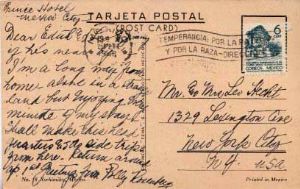 Prince Hotel
Mexico City
TARJETA POSTAL
(POST CARD)
Dear Edith
I'm a long way from
home alone in a strange
land but enjoying every
minute of my stay.
Shall make this head
quarters & do side trips
from here. Return around
1st
TEMPERANCIA: POR LA
Y POR LA RAZA-
6
CORREOS MEXICO
Mr. Geo Mrs Les Hecht
1329 Lexington Ave
New York City
N.Y. USA
Printed in Mexico